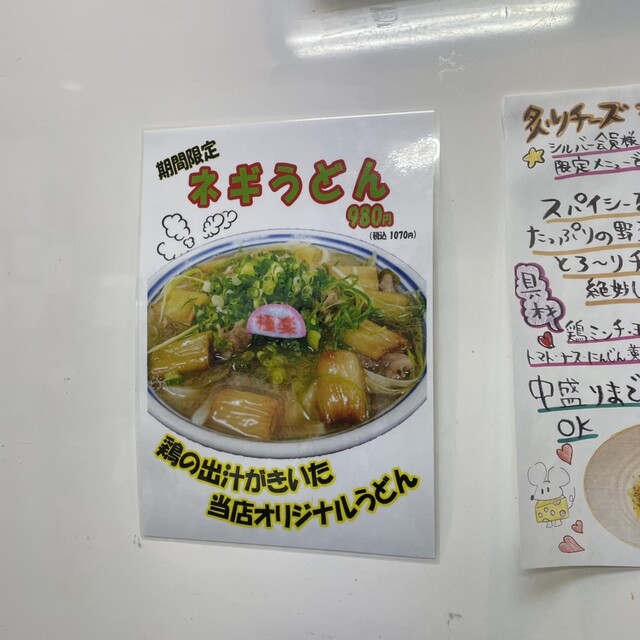 期間限定
ネギうどん
980円
(税込 1070円)
極楽
鶏の出汁がきいた
当店オリジナルうどん
炙りチーズ
シルバー会員様
限定メニュー
スパイシーな
たっぷりの野
とろ〜りチ
絶妙し
具材
鶏ミンチ
トマト・ナス・にんじん
中盛りまで
OK